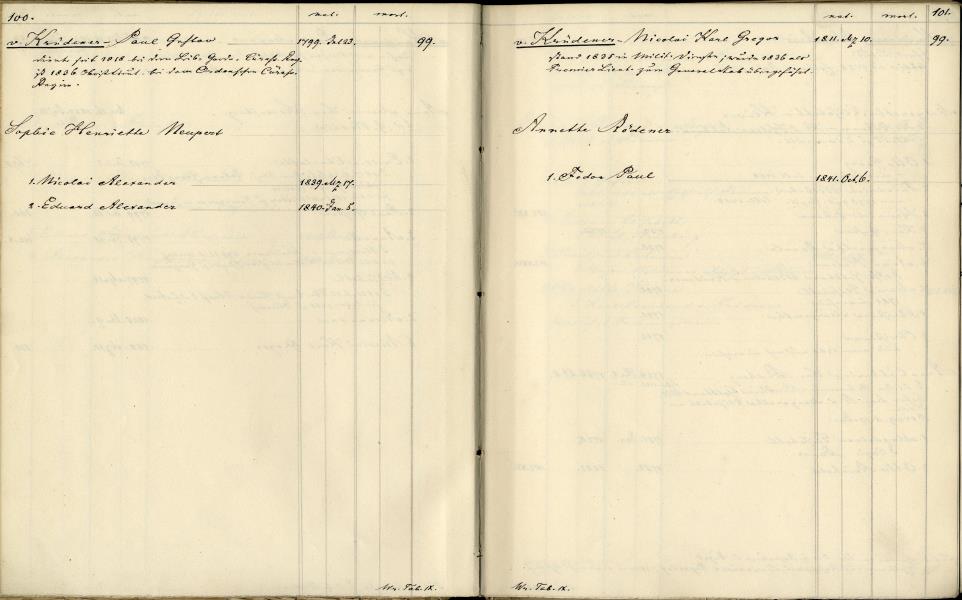 100.
nat. mort.
v. Krüdener - Paul Gustav 1799. Jul 23. 99.
dient seit 1818 bei dem Leib. Garde. Cürass. Reg.
ist 1836 Obristlieut. bei dem Ordensschen Cürass.
Regim.
Sophie Henriette Neupert
1. Nicolai Alexander 1839. Mz 17.
2. Eduard Alexander 1840. Jan. 5.
Wr. Tab. IX.
101.
nat. mort.
v. Krüdener - Nicolai Karl Gregor 1811. Mz 10. 99.
stand 1835 in Milit. Dienste; wurde 1836 als
Premier Lieut. zum General Stab übergeführt.
Annette Rödener
1. Fedor Paul 1841. Oct. 6.
Wr. Tab. IX.